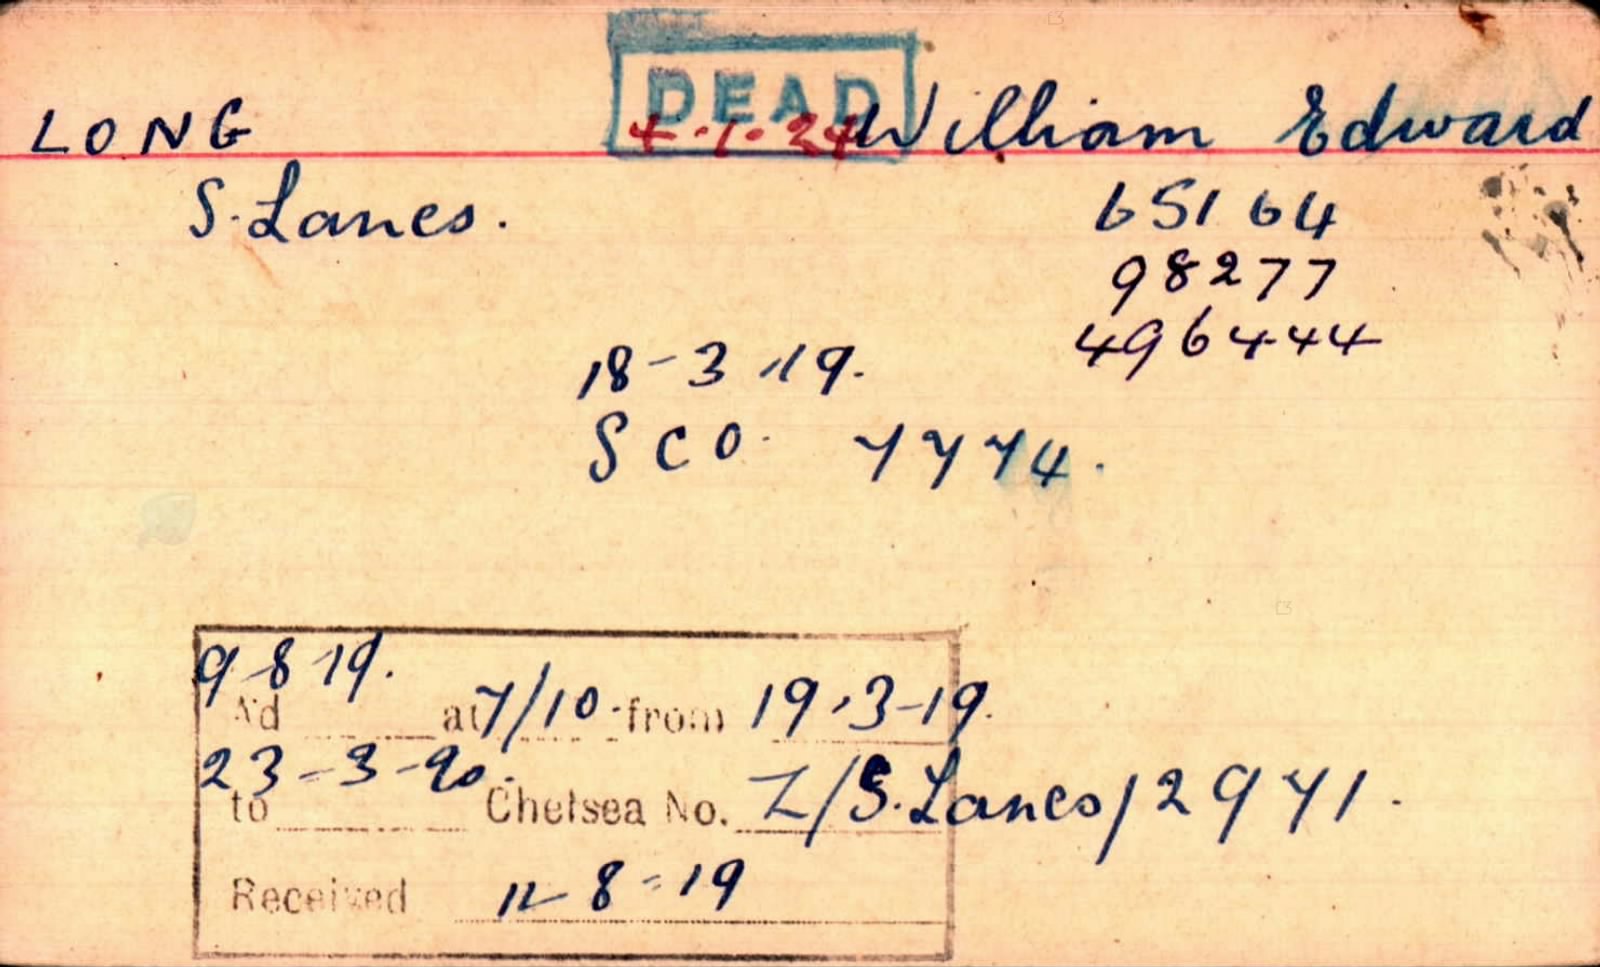 DEAD
LONG 4.1.24 William Edward
S. Lancs. 65164
98277
496444
18-3-19.
S C O. 7774.
9-8-19.
A'd at 7/10. from 19.3-19.
23-3-20.
to Chelsea No. Z/S.Lancs/2971.
Received 12-8-19